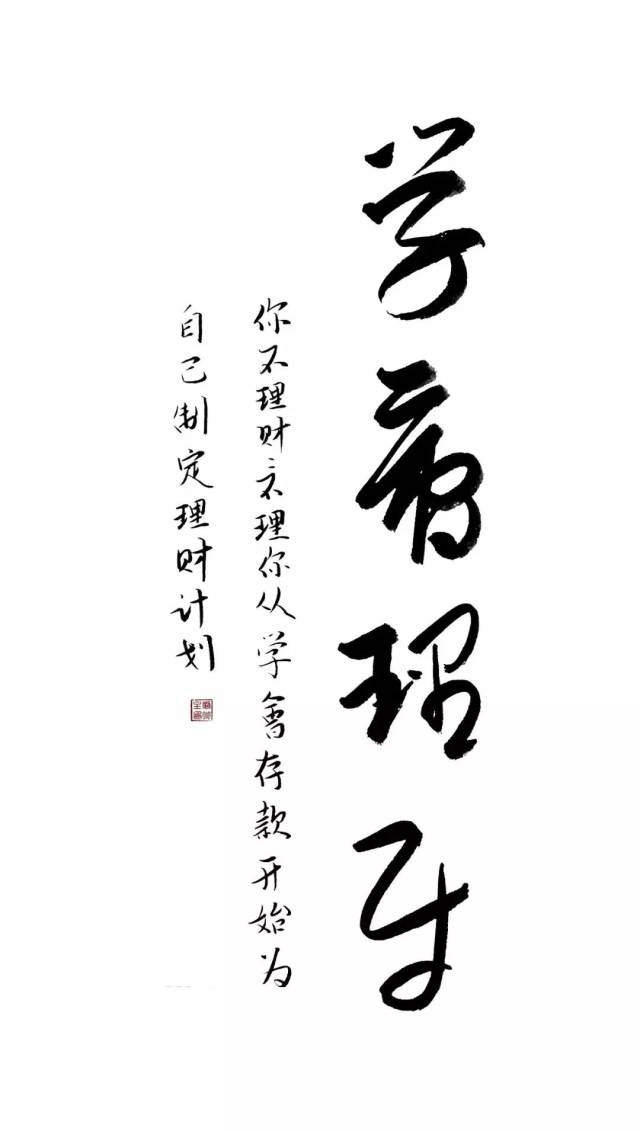 学会理财
你不理财财不理你从学會存款开始为
自己制定理财计划